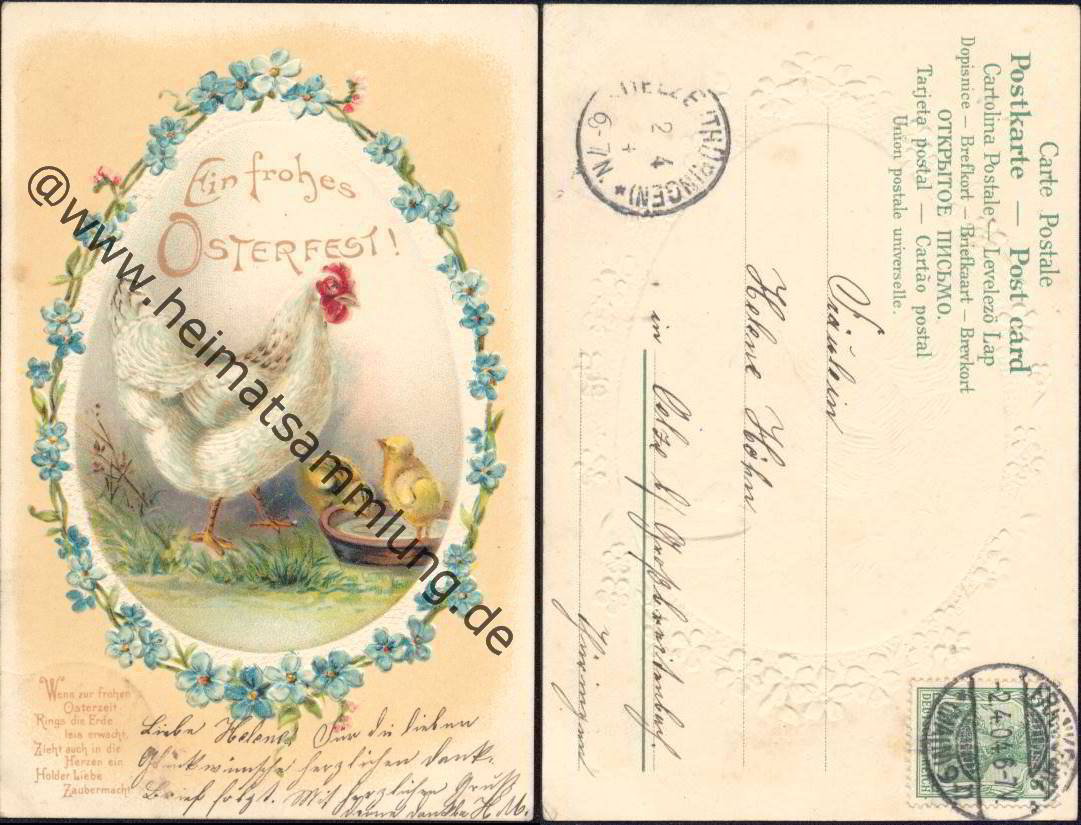 Ein frohes
Osterfest!
@www.heimatsammlung.de
Wenn zur frohen
Osterzeit
Rings die Erde
leis erwacht,
Zieht auch in die
Herzen ein
Holder Liebe
Zaubermacht
Liebe Helene! Für die lieben
Glückwünsche herzlichen Dank.
Brief folgt. Mit herzlichen Gruß
deine H.M.
Carte Postale
Postkarte — Post card
Cartolina Postale — Levelező Lap
Dopisnice — Brefkort — Briefkaart — Brevkort
ОТКРЫТОЕ ПИСЬМО.
Tarjeta postal — Cartão postal
Union postale universelle.
Fräulein
Helene Höhn
in Oelze
Thüringen
(THÜRINGEN) *
2 4
6-7 N.
-2.4.04.6-7N.